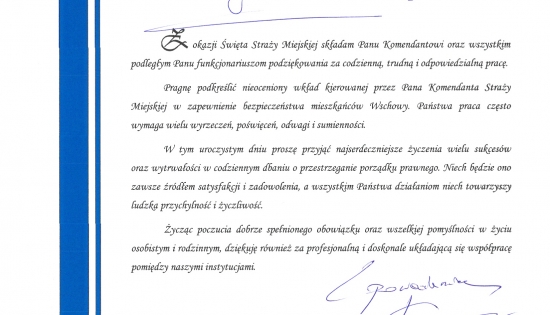 Z okazji Święta Straży Miejskiej składam Panu Komendantowi oraz wszystkim
podległym Panu funkcjonariuszom podziękowania za codzienną, trudną i odpowiedzialną pracę.
Pragnę podkreślić nieoceniony wkład kierowanej przez Pana Komendanta Straży
Miejskiej w zapewnienie bezpieczeństwa mieszkańców Wschowy. Państwa praca często
wymaga wielu wyrzeczeń, poświęceń, odwagi i sumienności.
W tym uroczystym dniu proszę przyjąć najserdeczniejsze życzenia wielu sukcesów
oraz wytrwałości w codziennym dbaniu o przestrzeganie porządku prawnego. Niech będzie ono
zawsze źródłem satysfakcji i zadowolenia, a wszystkim Państwa działaniom niech towarzyszy
ludzka przychylność i życzliwość.
Życząc poczucia dobrze spełnionego obowiązku oraz wszelkiej pomyślności w życiu
osobistym i rodzinnym, dziękuję również za profesjonalną i doskonale układającą się współpracę
pomiędzy naszymi instytucjami.